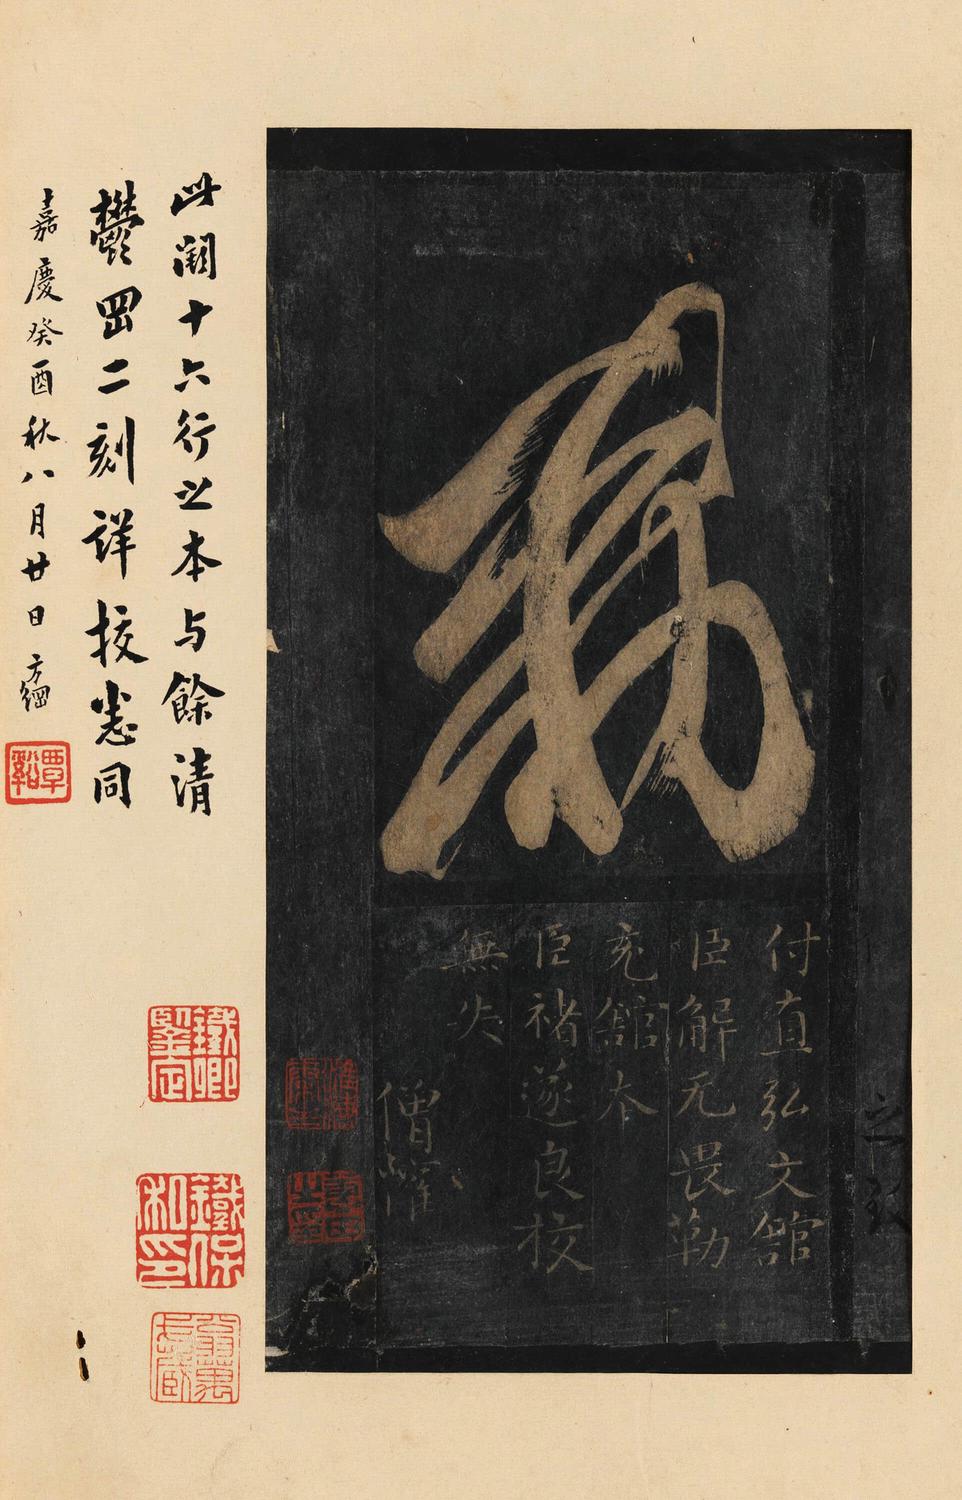 敕
付直弘文館
臣解无畏勒
充館本
臣褚遂良校
無失
僧權
此闕十六行之本与餘清
鬱岡二刻詳挍悉同
嘉慶癸酉秋八月廿日方綱
覃谿
鐵卿鑒定
鐵保私印